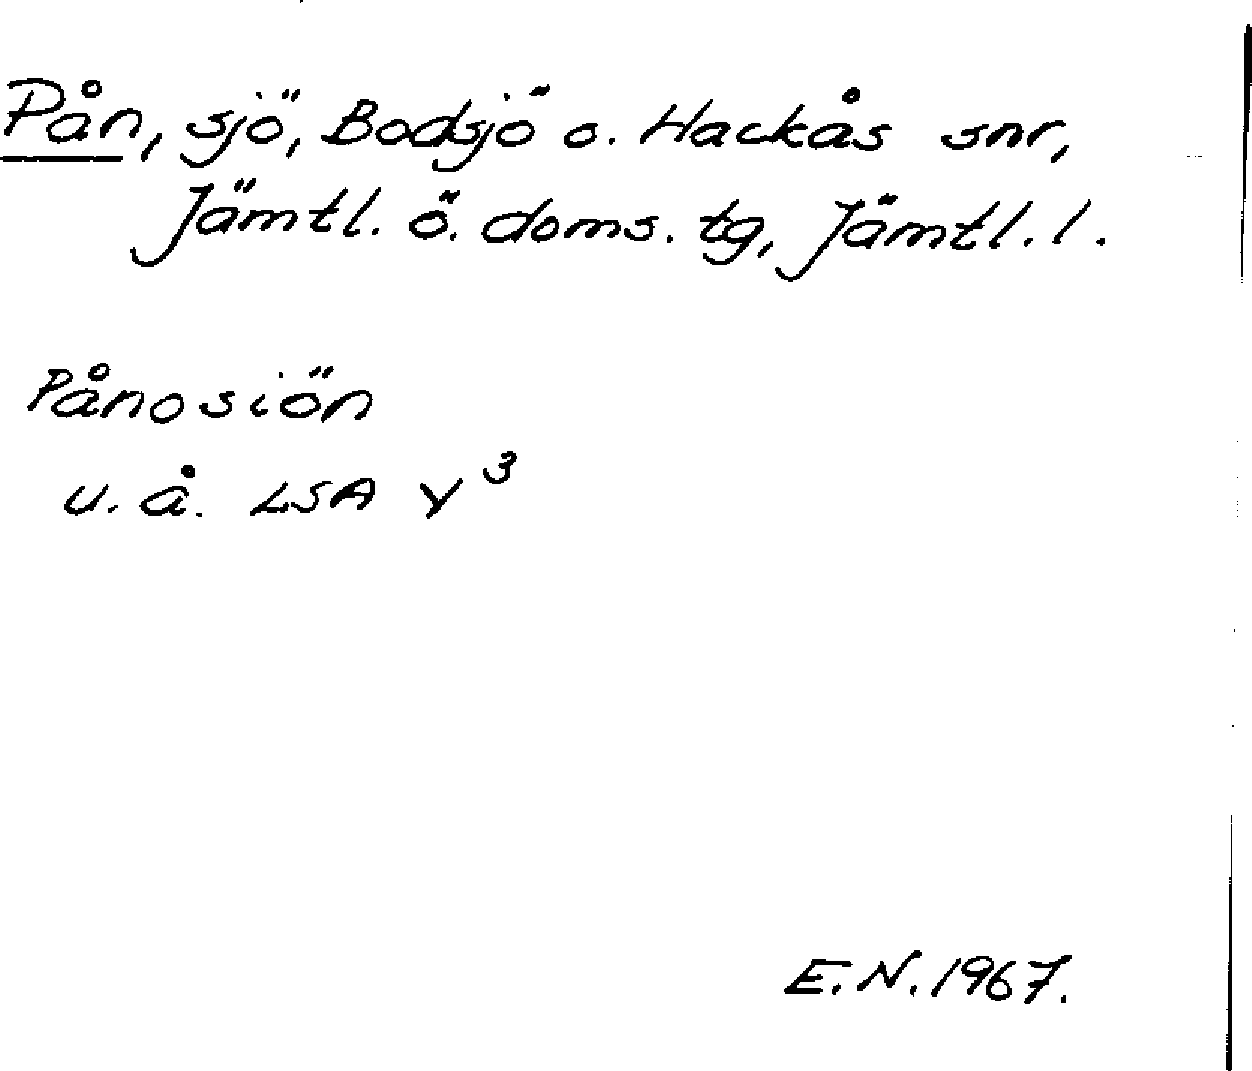 Pån, sjö, Bodsjö o. Hackås snr,
Jämtl. ö. doms. tg, Jämtl. l.
Pånosiön
u. å. LSA Y³
E. N. 1967.